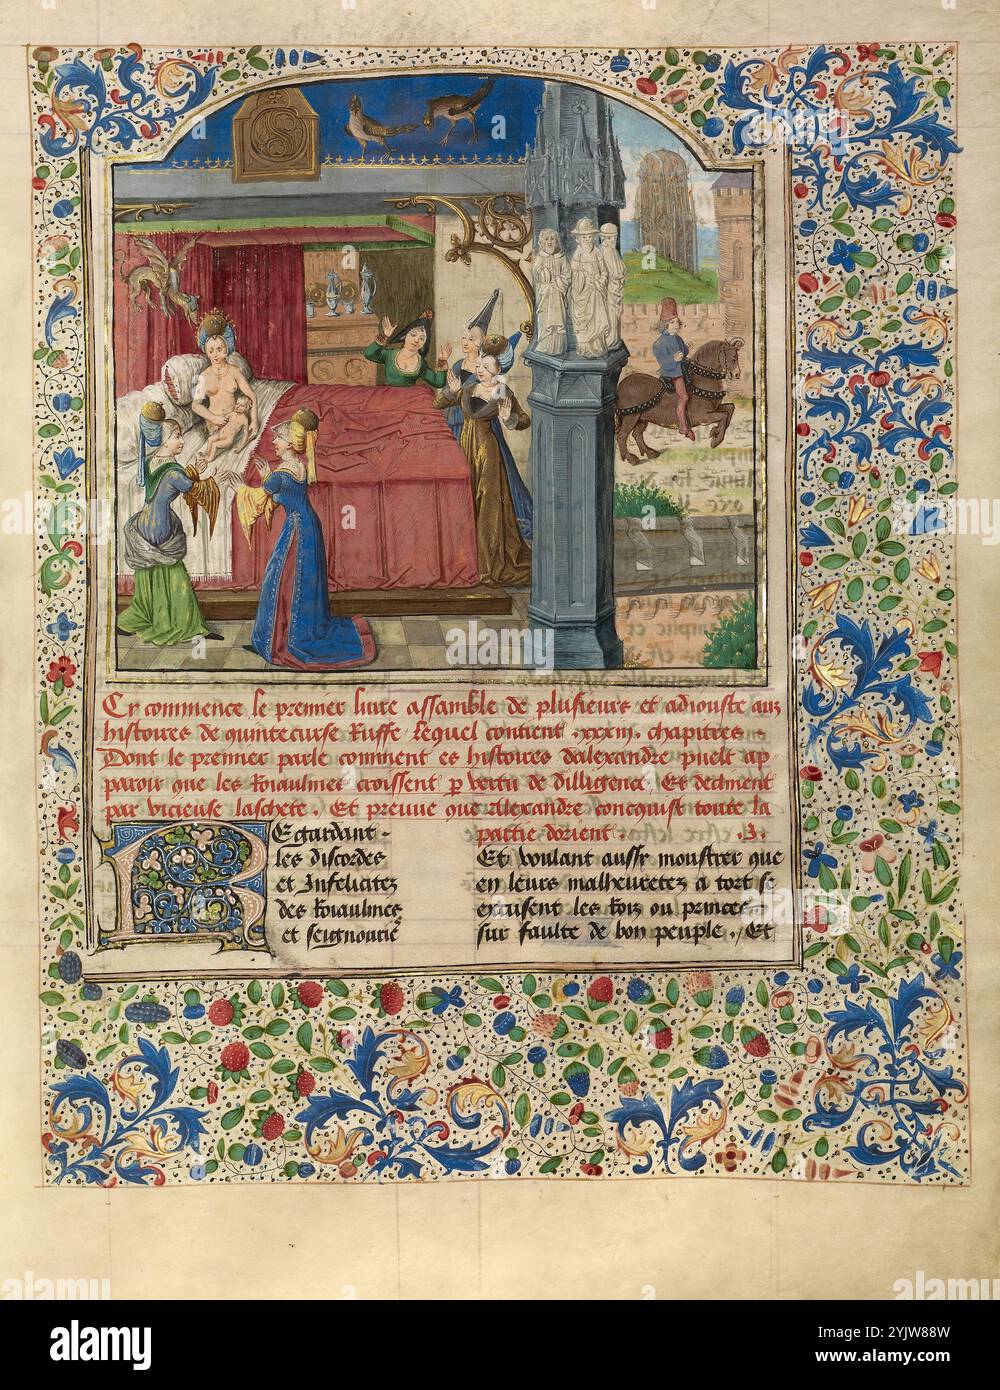 Cy commence le premier livre assemble de plusieurs et adiouste aux
histoires de quintecurse Ruffe lequel contient .xxxiii. chapitres .
Dont le premier parle comment es histoires dalexandre puelt ap
paroir que les Roiaulmes croissent p vertu de dilligence , Et declinent
par vicieuse laschete , Et preuve que Alexandre conquist toute la
partie dorient . .I.
REgardant
les discordes
et Infelicitez
des Roiaulmes
et seignourie
Et voulant aussy moustrer que
en leurs malheuretez a tort se
excusent les Rois ou princes
sur faulte de bon peuple , Et
alamy
Image ID: 2YJW88W
www.alamy.com